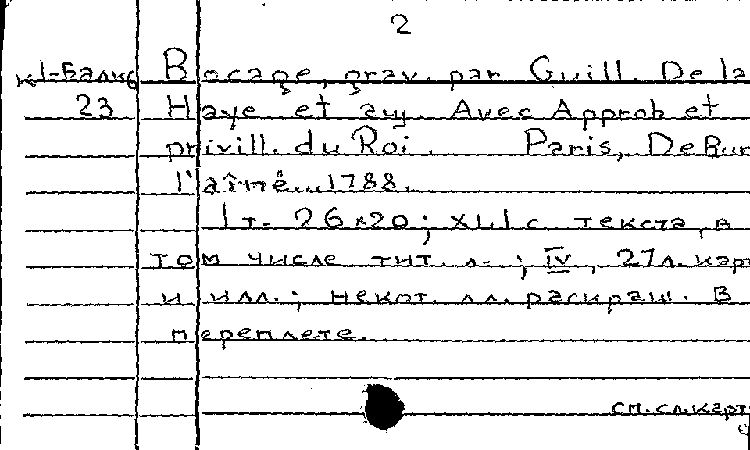 2
к1-Балк6 Bocage, grav. par Guill. De la
23 Haye et au. Avec Approb et
privill. du Roi. Paris, De Bur
l'aîné...1788.
1 т. 26×20; XLI с текста, в
том числе тит. л.; IV, 27л. карт
и илл.; некот. лл. раскраш. В
переплете.
см. сл. карт